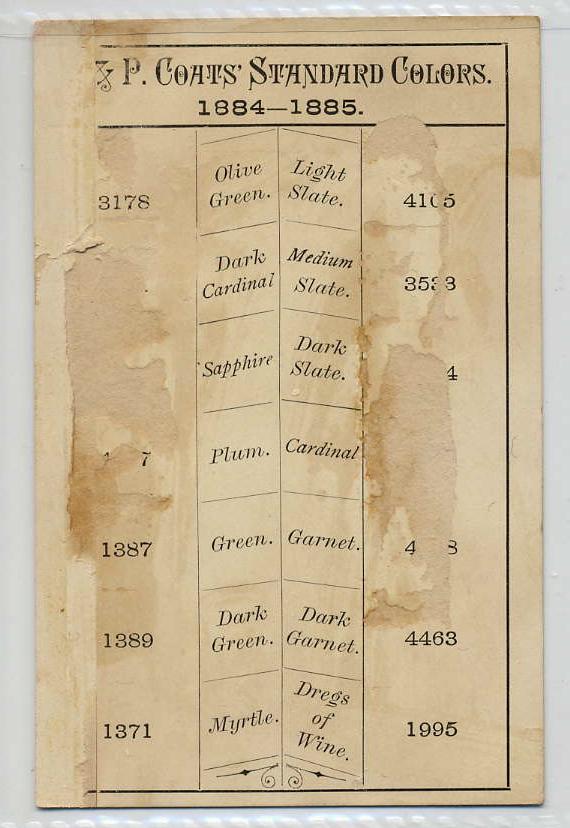 & P. COATS' STANDARD COLORS.
1884—1885.
3178 Olive Green. Light Slate.
Dark Cardinal Medium Slate.
Sapphire Dark Slate.
Plum. Cardinal
1387 Green. Garnet.
1389 Dark Green. Dark Garnet. 4463
1371 Myrtle. Dregs of Wine. 1995